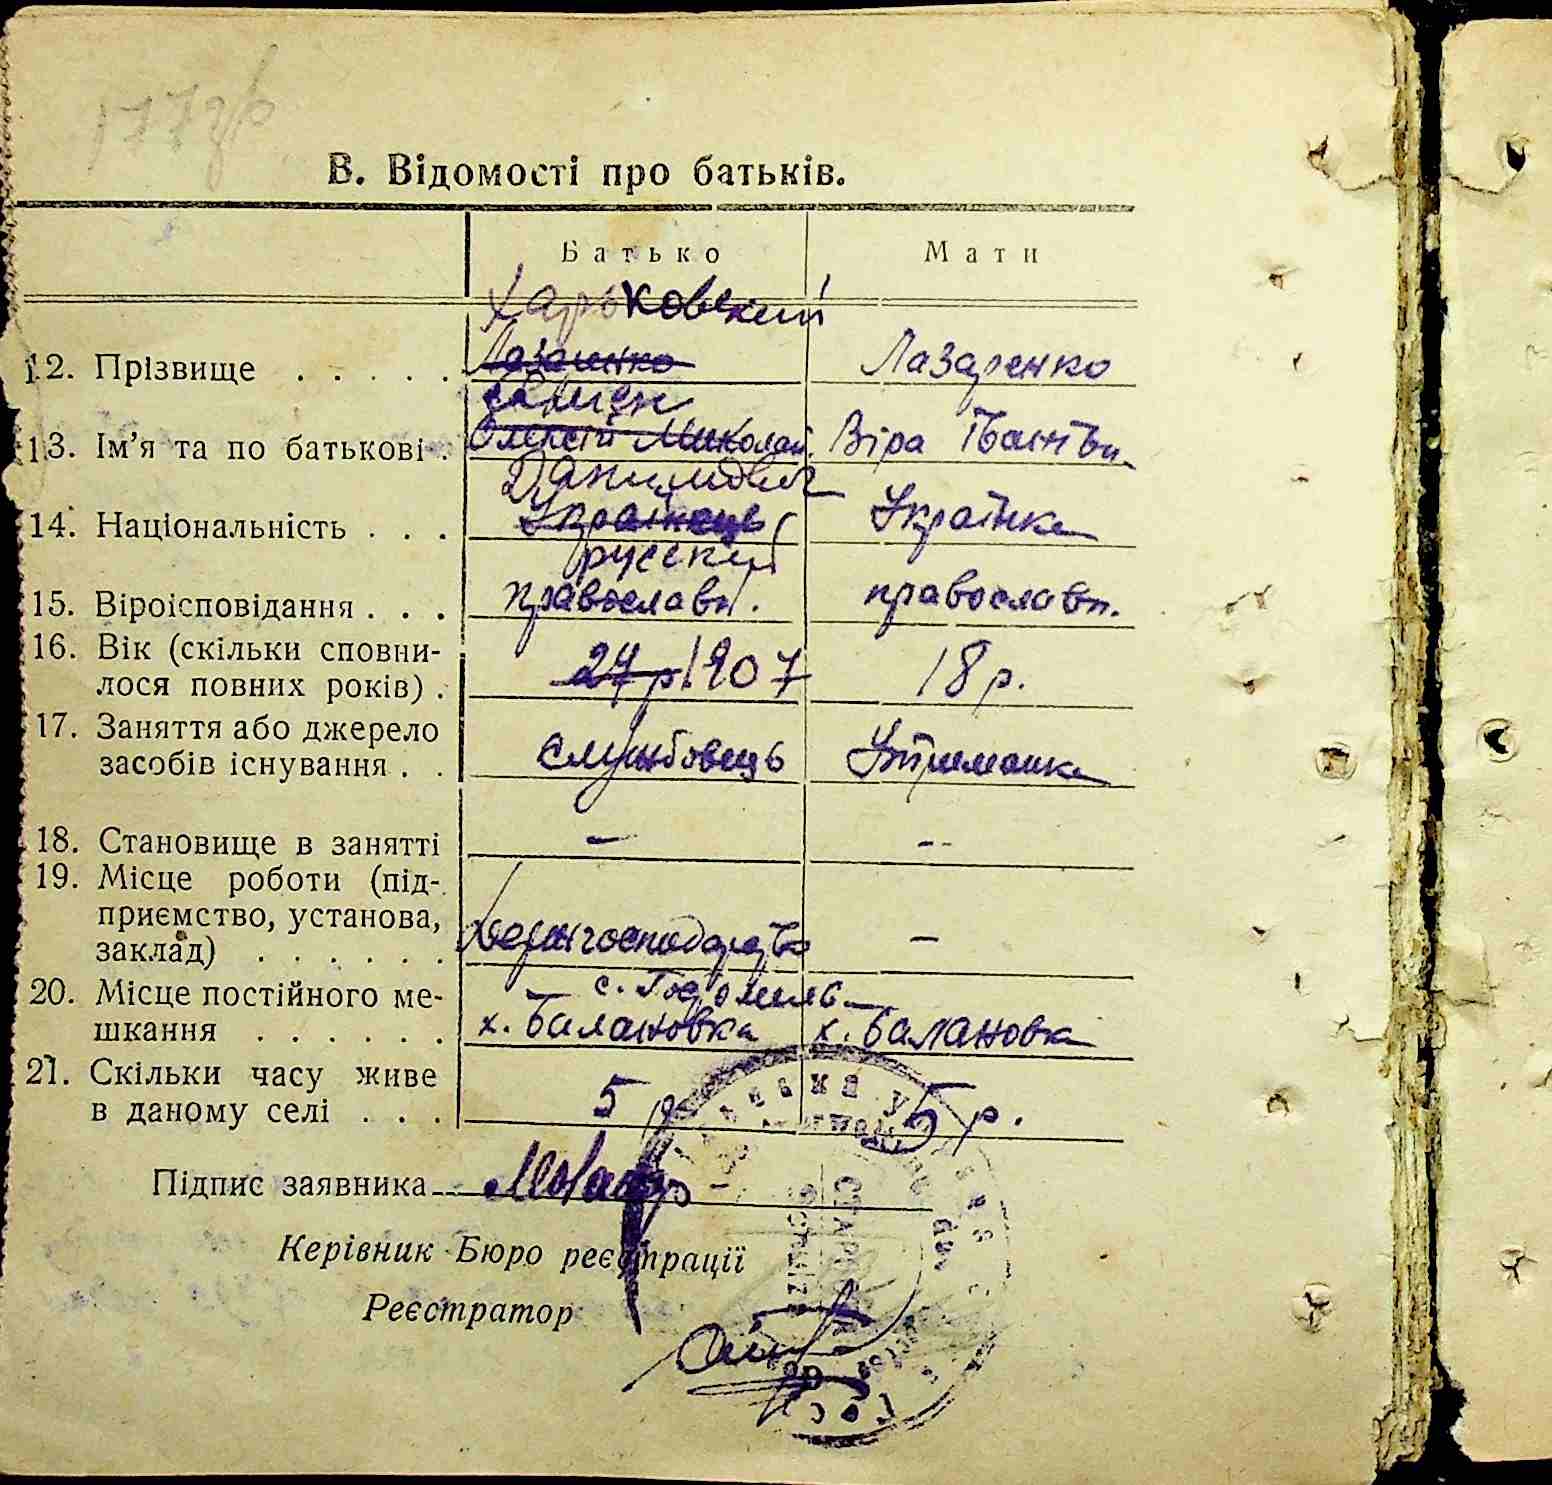 177зр
В. Відомості про батьків.
Батько Мати
Харьковский
12. Прізвище . . . . . Лазаренко Лазаренко
Семен
13. Ім’я та по батькові . Олексій Миколай. Віра Іванівн.
Данилович
14. Національність . . . Українець Українка
русский
15. Віроісповідання . . . православн. православн.
16. Вік (скільки сповни-
лося повних років) . 27 р 1907 18 р.
17. Заняття або джерело
засобів існування . . службовець Утриманка
18. Становище в занятті – --
19. Місце роботи (під-
приємство, установа,
заклад) . . . . . . –
20. Місце постійного ме- с. Гостомель
шкання . . . . . . х. Балановка х. Балановка
21. Скільки часу живе
в даному селі . . . 5 р 5 р.
Підпис заявника
Керівник Бюро реєстрації
Реєстратор